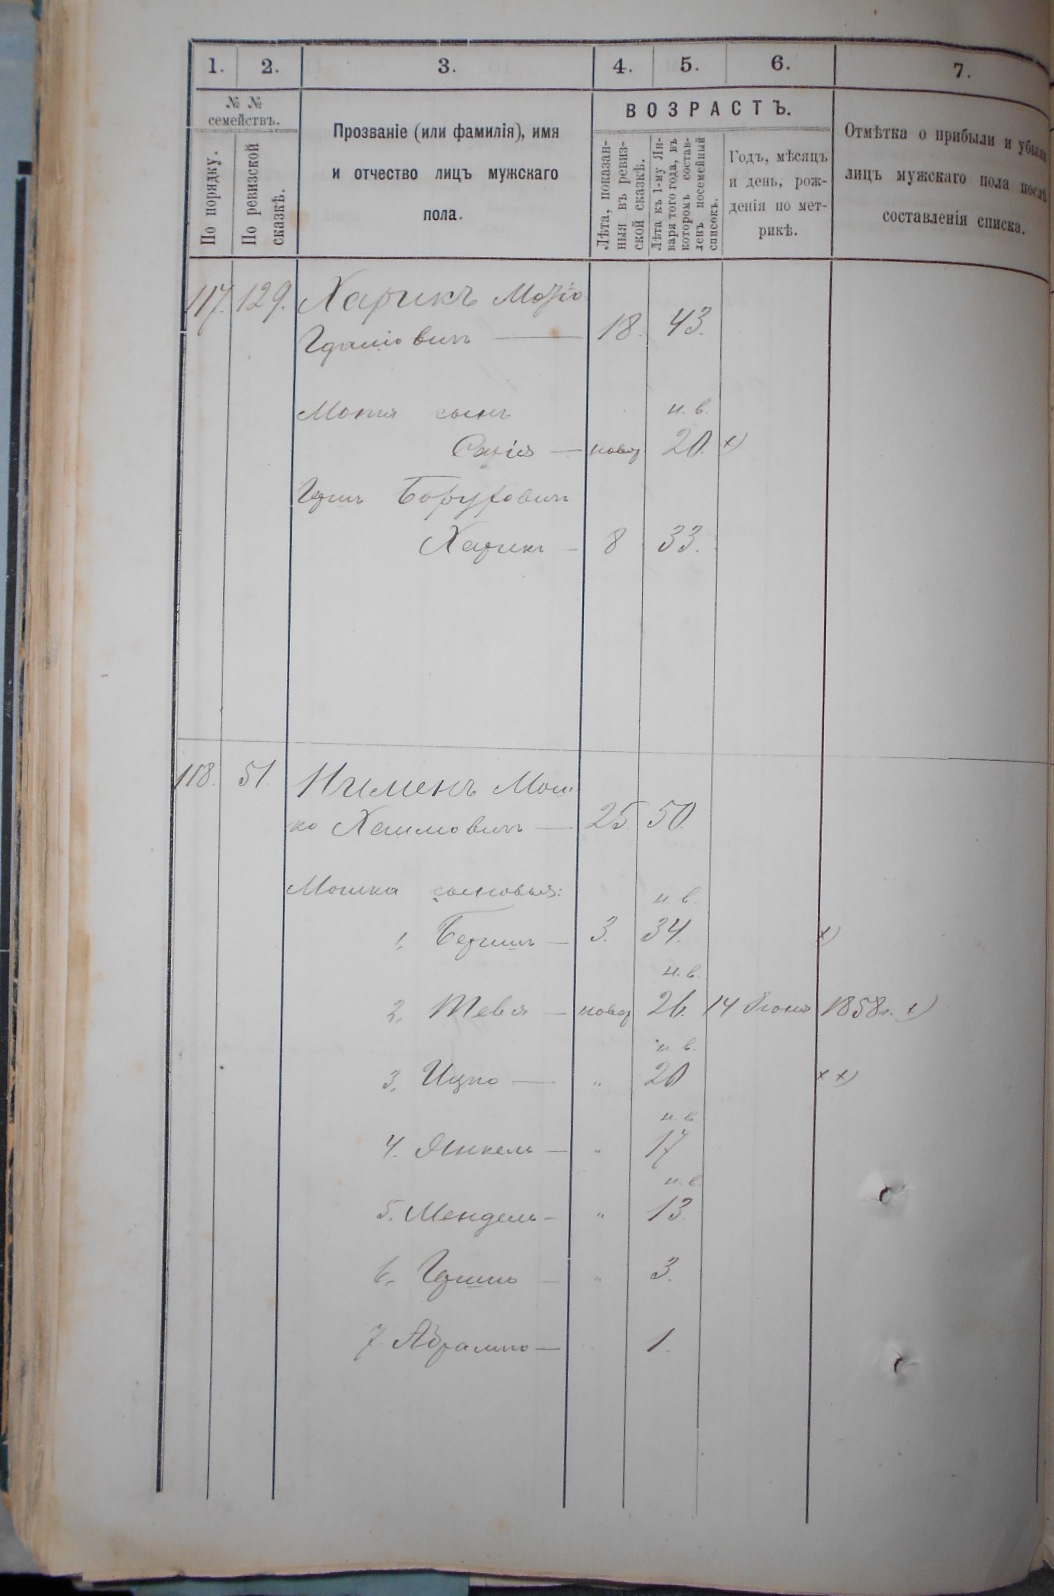 1. 2. 3. 4. 5. 6. 7.
№ № семействъ.
По порядку.
По ревизской сказкѣ.
Прозваніе (или фамилія), имя
и отчество лицъ мужскаго
пола.
ВОЗРАСТЪ.
Лѣта, показан-
ныя въ ревиз-
ской сказкѣ.
Лѣта къ 1-му Ян-
варя того года, въ
которомъ состав-
ленъ посемейный
списокъ.
Годъ, мѣсяцъ
и день, рож-
денія по мет-
рикѣ.
Отмѣтка о прибыли и убыли
лицъ мужскаго пола послѣ
составленія списка.
117. 129. Харикъ
18. 43.
сынъ н. в.
новор 20. х)
Боруховичъ
Харикъ — 8 33.
118. 51. Мош
ко Хаимовичъ — 25. 50.
Мошка сыновья: н. в.
1, — 3. 34. х)
н. в.
2, Тевя — новор 26. 14 Іюня 1858г. х)
н. в.
3, Ицко — " 20 х х)
н. в.
4. Янкель — " 17
н. в.
5. Мендель — " 13.
6. Гершко — " 3.
7. Абрамко — 1.